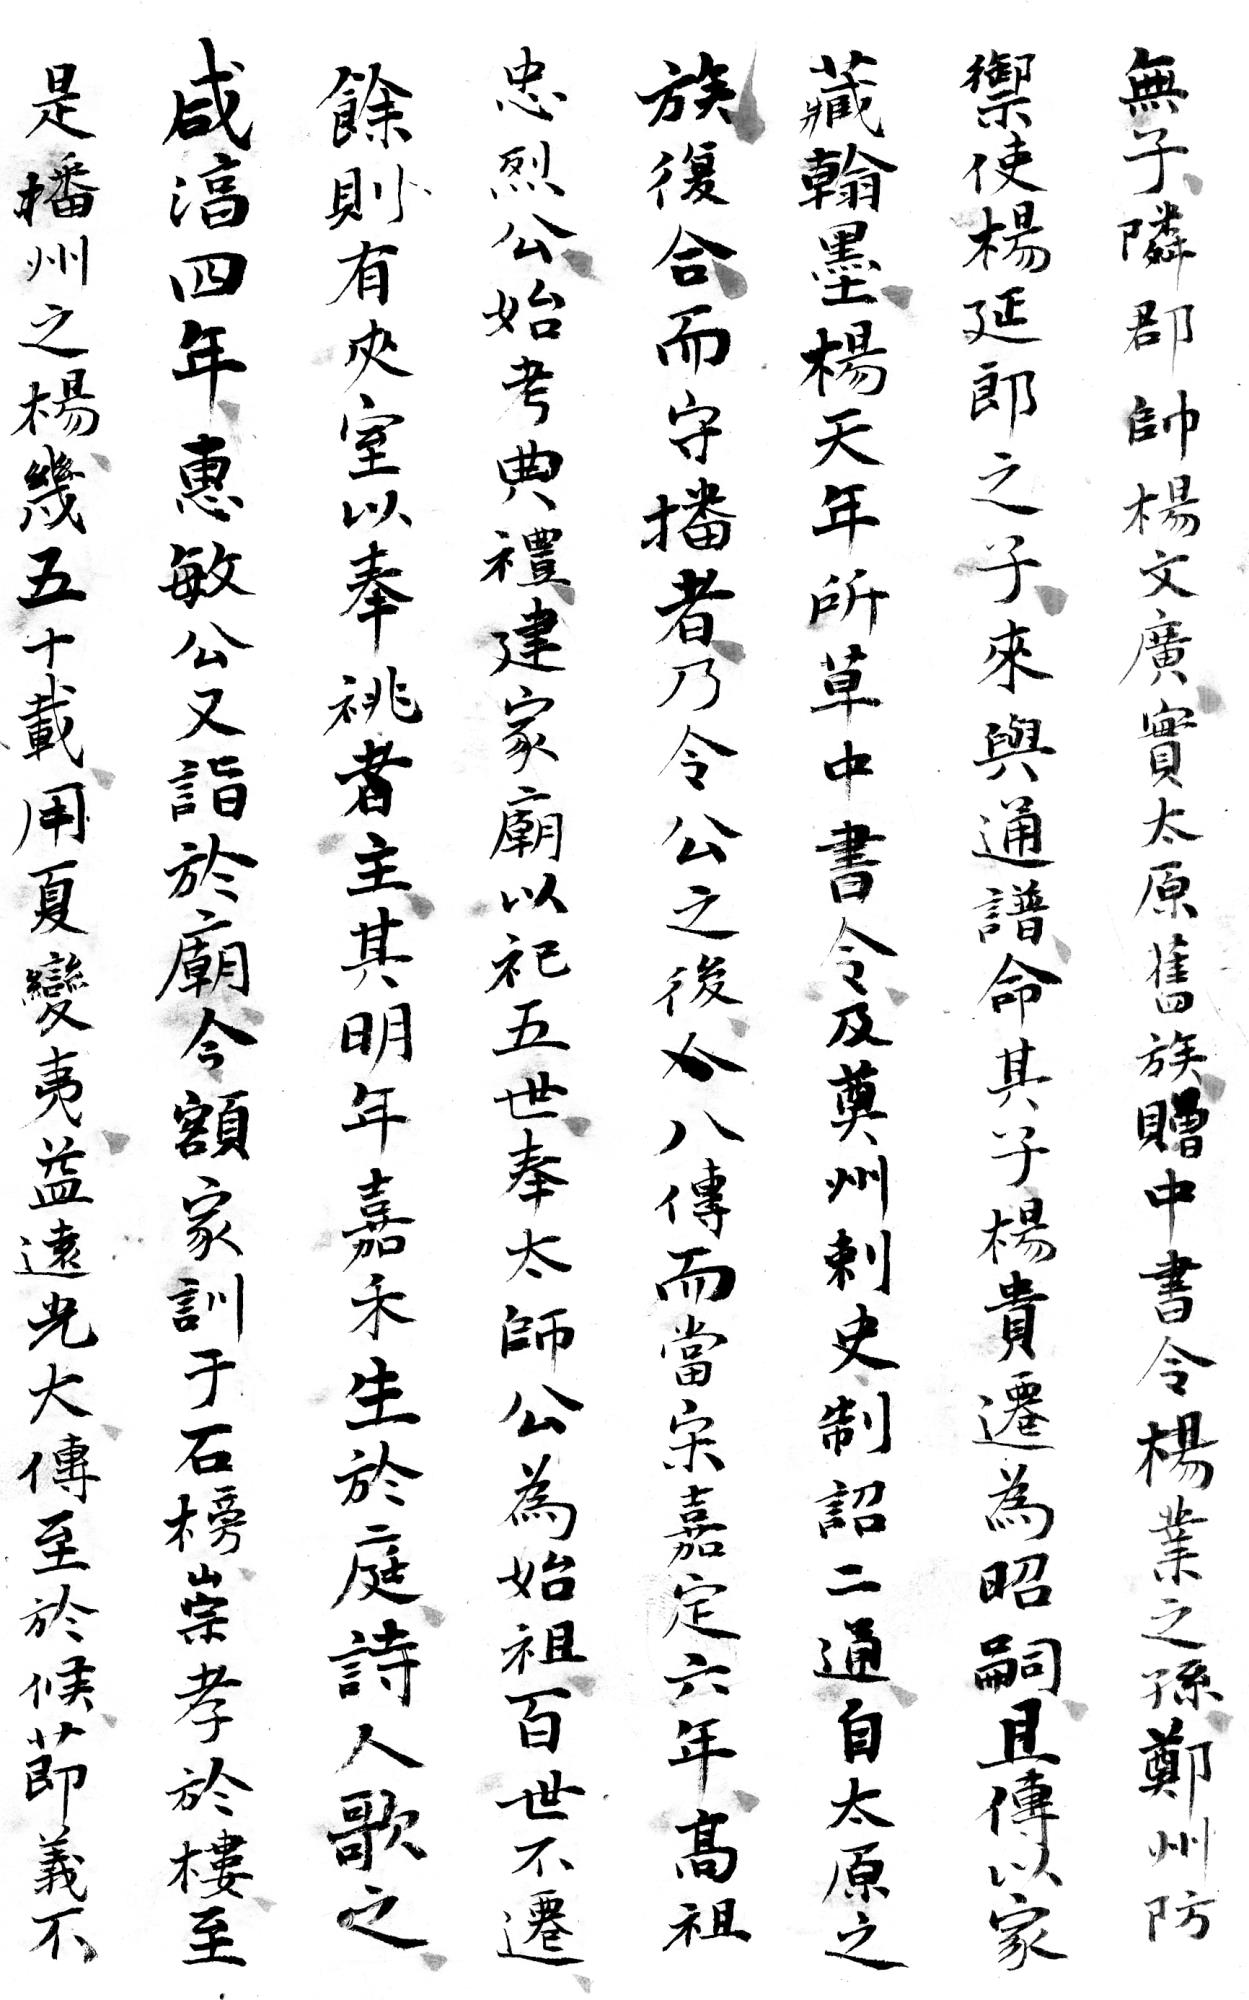 無子隣郡帥楊文廣實太原舊族贈中書令楊業之孫鄭州防
禦使楊延郎之子來與通譜命其子楊貴遷為昭嗣且傳以家
藏翰墨楊天年所草中書令及莫州刺史制詔二通自太原之
族復合而守播者乃令公之後今八傳而當宋嘉定六年高祖
忠烈公始考典禮建家廟以祀五世奉太師公為始祖百世不遷
餘則有夾室以奉祧者主其明年嘉禾生於庭詩人歌之
咸淳四年惠敏公又詣於廟令額家訓于石榜崇孝於樓至
是播州之楊幾五十載用夏變夷益遠光大傳至於候節義不